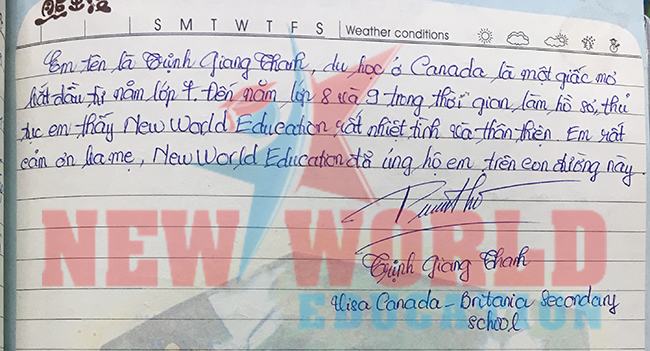 熊出没
S M T W T F S Weather conditions
Em tên là Trịnh Giang Thanh, du học ở Canada là một giấc mơ
bắt đầu từ năm lớp 7. Đến năm lớp 8 và 9 trong thời gian làm hồ sơ, thủ
tục em thấy New World Education rất nhiệt tình và thân thiện. Em rất
cảm ơn ba mẹ, New World Education đã ủng hộ em trên con đường này.
Trịnh Giang Thanh
Visa Canada - Britania Secondary
School
NEW WORLD
EDUCATION